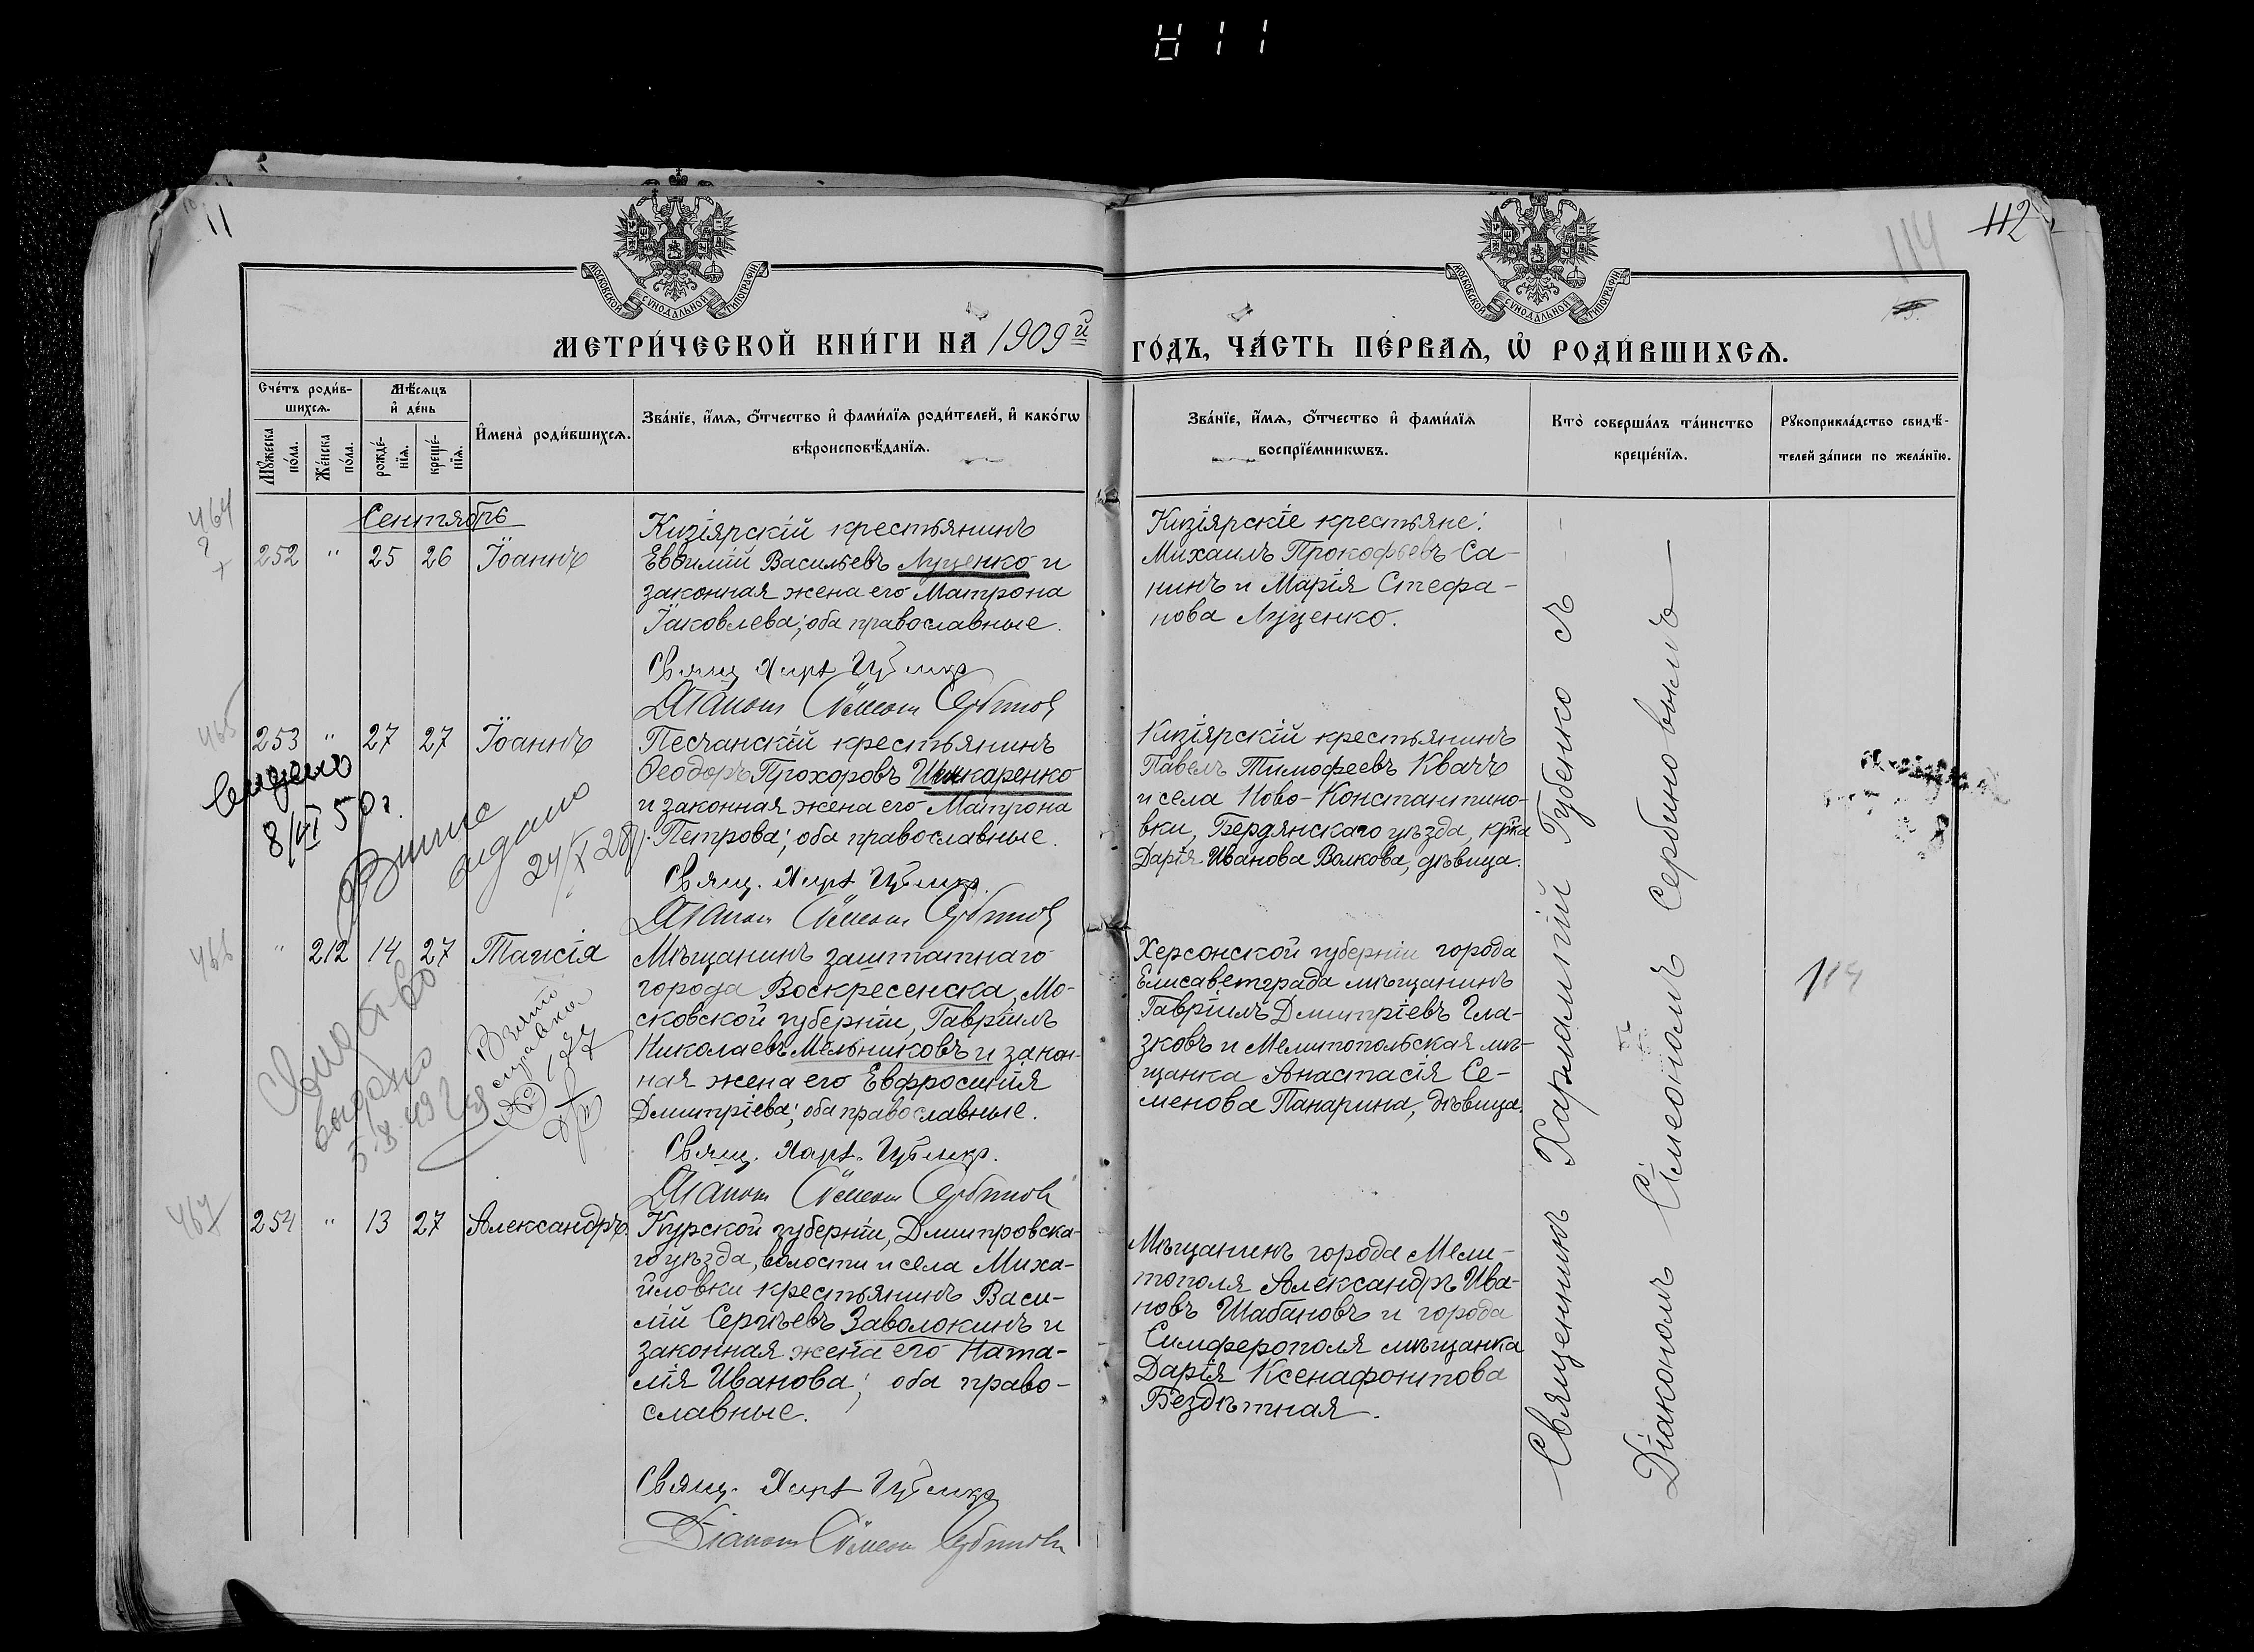 11
112
114
МОСКОВСКОЙ СѴНОДАЛЬНОЙ ТИПОГРАФІИ.
МОСКОВСКОЙ СѴНОДАЛЬНОЙ ТИПОГРАФІИ.
МЕТРИ́ЧЕСКОЙ КНИ́ГИ НА 1909й ГО́ДЪ, ЧА́СТЬ ПЕ́РВАѦ, Ѡ҆ РОДИ́ВШИХСѦ.
Сче́тъ роди́в-
шихсѧ.
Мꙋ́жеска
по́ла.
Же́нска
по́ла.
Мѣ́сѧцъ
и҆ де́нь
рожде́-
нїѧ.
креще́-
нїѧ.
И҆мена̀ роди́вшихсѧ.
Зва́нїе, и҆́мѧ, ѻ҆́тчество и҆ фами́лїѧ роди́телей, и҆ како́гѡ
вѣроисповѣ́данїѧ.
Зва́нїе, и҆́мѧ, ѻ҆́тчество и҆ фами́лїѧ
воспрїе́мникѡвъ.
Кто̀ соверша́лъ та́инство
креще́нїѧ.
Рꙋкоприкла́дство свидѣ́-
телей за́писи по жела́нїю.
Сентябрь
464
252 " 25 26 Іоаннъ
Кизіярскій крестьянинъ
Евѳимій Васильевъ Луценко и
законная жена его Матрона
Іаковлева; оба православные.
Свящ. Харл. Губенко
Діаконъ Сімеонъ Сербинов
Кизіярскіе крестьяне:
Михаилъ Прокофьевъ Са-
нинъ и Марія Стефа-
нова Луценко.
465
253 " 27 27 Іоаннъ
Песчанскій крестьянинъ
Ѳеодоръ Прохоровъ Шинкаренко
и законная жена его Матрона
Петрова; оба православные.
Свящ. Харл. Губенко
Діаконъ Сімеонъ Сербинов
Кизіярскій крестьянинъ
Павелъ Тимофеевъ Квачъ
и села Ново-Константино-
вки, Бердянскаго уѣзда, кр-ка
Дарія Иванова Волкова, дѣвица.
8/VI 50 г.
24/X 28
466
" 212 14 27 Таисія
Мѣщанинъ заштатнаго
города Воскресенска, Мо-
сковской губерніи, Гавріилъ
Николаевъ Мельниковъ и закон-
ная жена его Евфросинія
Димитріева; оба православные.
Свящ. Харл. Губенко.
Діаконъ Сімеонъ Сербинов
Херсонской губерніи города
Елисаветграда мѣщанинъ
Гавріилъ Димитріевъ Гла-
зковъ и Мелитопольская мѣ-
щанка Анастасія Се-
менова Панарина, дѣвица.
Свид-во
выдано
5.X.49
Взята
справка
114
467
254 " 13 27 Александръ.
Курской губерніи, Дмитровска-
го уѣзда, волости и села Миха-
йловки крестьянинъ Васи-
лій Сергѣевъ Заволокинъ и
законная жена его Ната-
лія Иванова; оба право-
славные.
Свящ. Харл. Губенко
Діаконъ Сімеонъ Сербинов
Мѣщанинъ города Мели-
тополя Александръ Ива-
новъ Шабановъ и города
Симферополя мѣщанка
Дарія Ксенафонтова
Бездѣтная.
Священникъ Харлампій Губенко съ
Діакономъ Сімеономъ Сербиновымъ